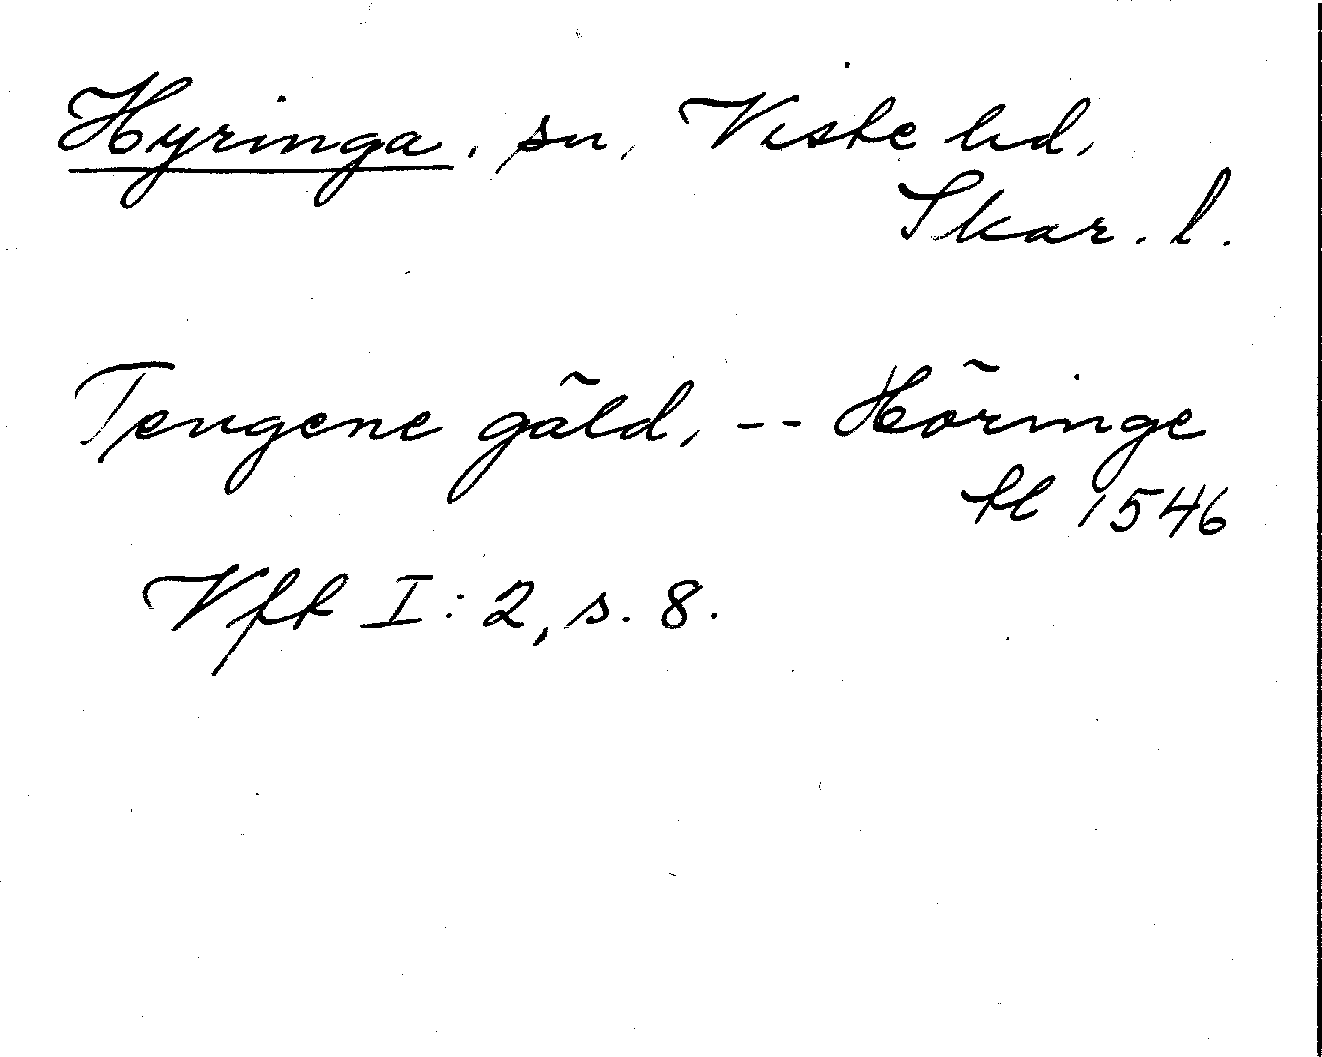 Hyringa, sn, Viste hd,
Skar. l.
Tengene gäld, -- Höringe
tl 1546
Vft I: 2, s. 8.